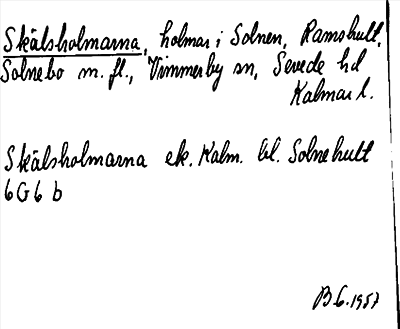 Skälsholmarna, holmar i Solnen, Ramshult,
Solnebo m. fl., Vimmerby sn, Sevede hd
Kalmar l.
Skälsholmarna ek. Kalm. bl. Solnehult
6G6 b
B6.1957